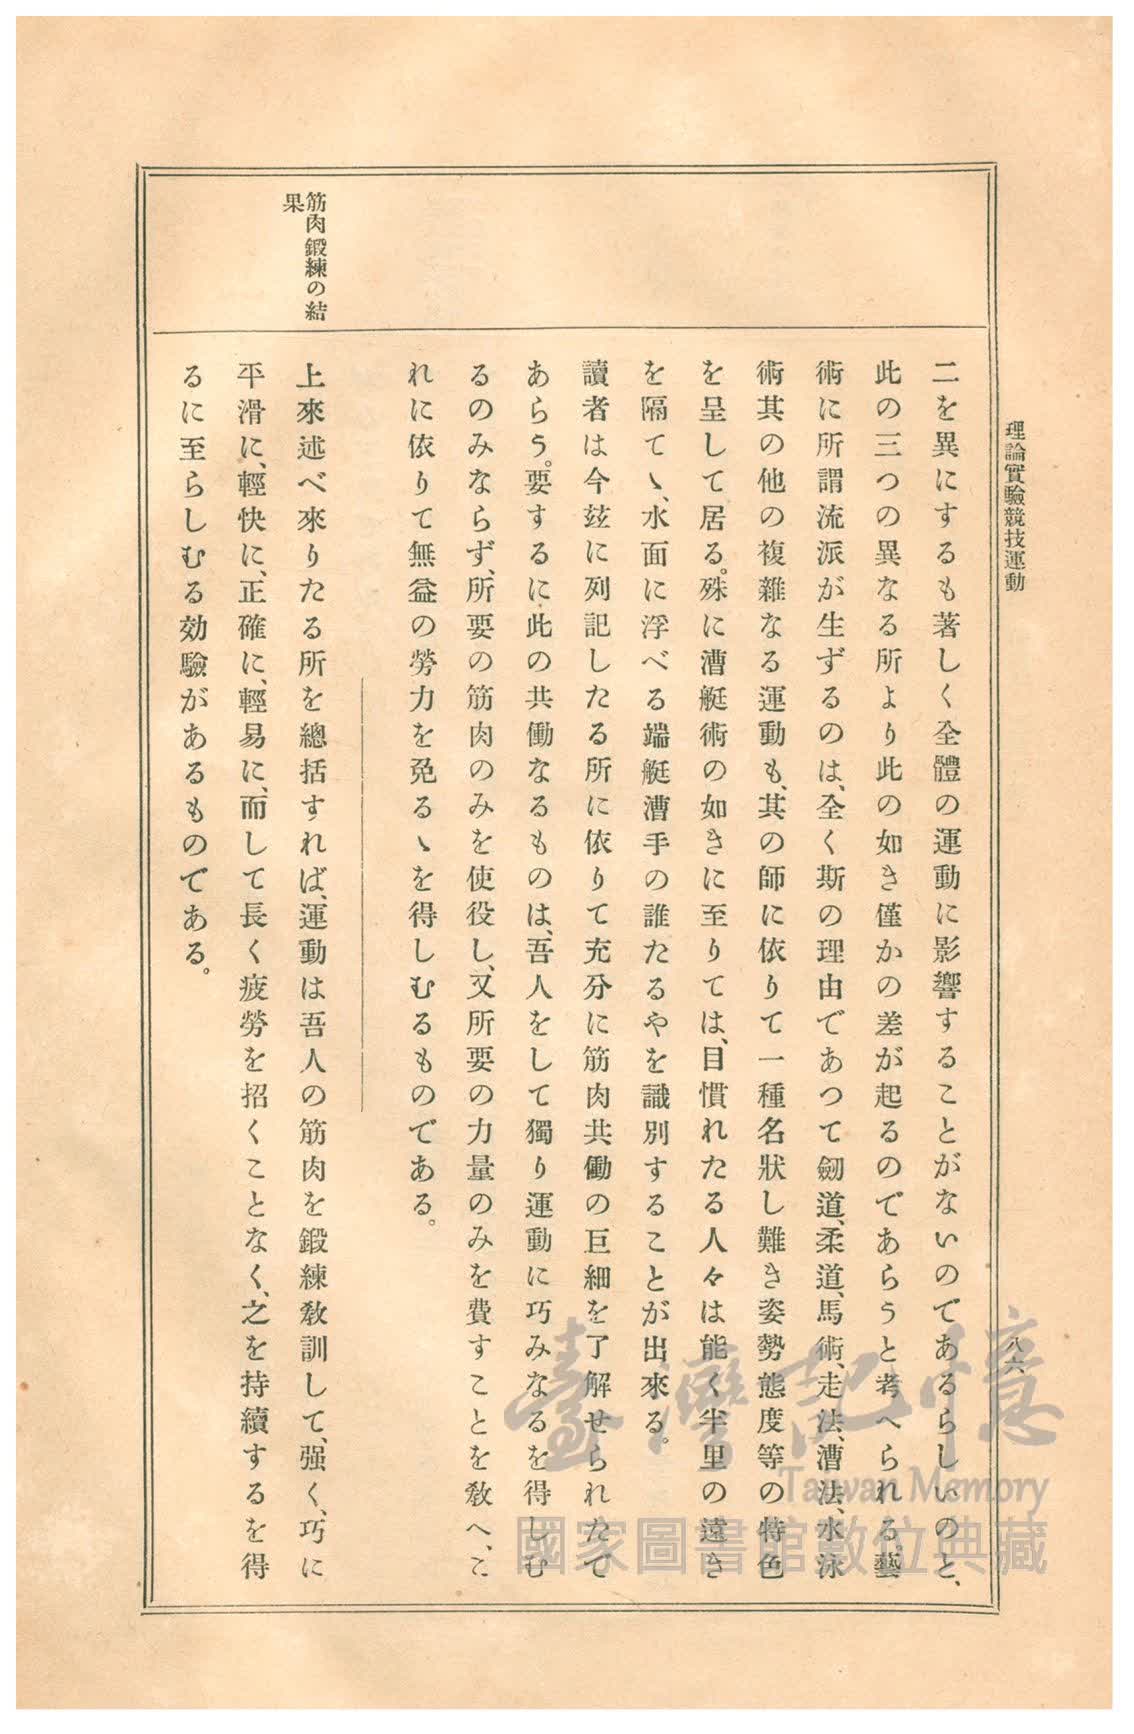 理論實驗競技運動
八六
二を異にするも著しく全體の運動に影響することがないのであるらしいのと、
此の三つの異なる所より此の如き僅かの差が起るのであらうと考へられる。藝
術に所謂流派が生ずるのは、全く斯の理由であつて劒道、柔道、馬術、走法、漕法、水泳
術其の他の複雜なる運動も、其の師に依りて一種名狀し難き姿勢態度等の特色
を呈して居る。殊に漕艇術の如きに至りては、目慣れたる人々は能く半里の遠き
を隔てゝ、水面に浮べる端艇漕手の誰たるやを識別することが出來る。
讀者は今玆に列記したる所に依りて充分に筋肉共働の巨細を了解せられたで
あらう。要するに此の共働なるものは、吾人をして獨り運動に巧みなるを得しむ
るのみならず、所要の筋肉のみを使役し、又所要の力量のみを費すことを敎へ、こ
れに依りて無益の勞力を免るゝを得しむるものである。
筋肉鍛練の結
果
上來述べ來りたる所を總括すれば、運動は吾人の筋肉を鍛練敎訓して、强く、巧に
平滑に、輕快に、正確に、輕易に、而して長く疲勞を招くことなく、之を持續するを得
るに至らしむる効驗があるものである。
臺灣記憶
Taiwan Memory
國家圖書館數位典藏